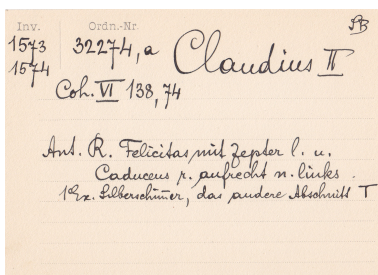 Inv. Ordn.-Nr. SB
1573 32274, a Claudius II
1574
Coh. VI 138, 74
Ant. R. Felicitas mit Zepter l. u.
Caduceus r. aufrecht n. links.
1 Ex. Silberschim̄er, das andere Abschnitt T